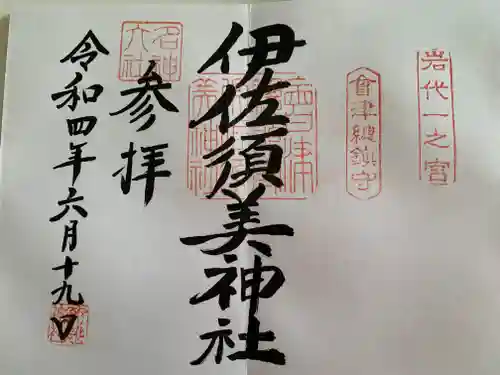 岩代一之宮
會津總鎮守
伊佐須美神社
參拝
名神大社
令和四年六月十九日